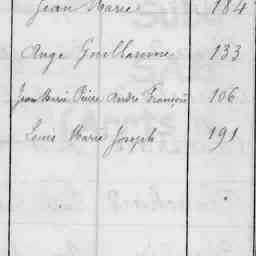 Jean Marie 184
Ange Guillaume 133
Jean Marie Pierre André François 106
Louis Marie Joseph 191